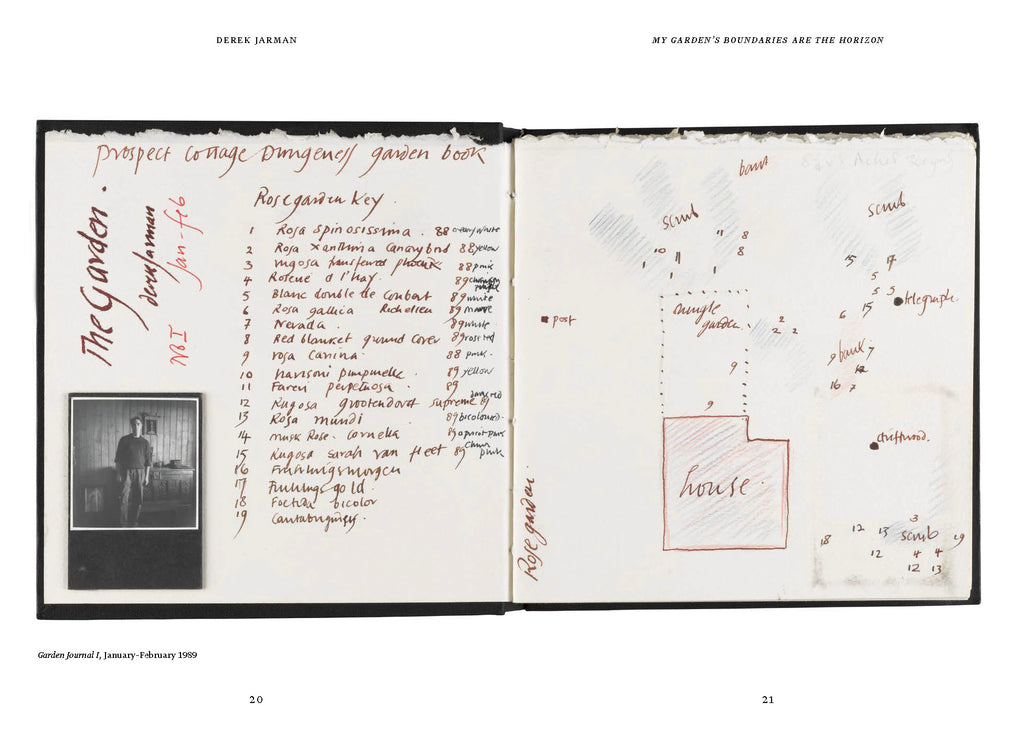 DEREK JARMAN
MY GARDEN'S BOUNDARIES ARE THE HORIZON
prospect cottage Dungeness garden book
The Garden.
derek jarman
No I Jan-feb
Rose garden key.
1 Rosa spinosissima. 88 white
2 Rosa xanthina canary bird 88 yellow
3 rugosa 88 pink
4 Roserie d l'hay. 89 purple
5 Blanc double de coubart 89 white
6 Rosa gallica Richelieu 89 mauve
7 Nevada. 89 white
8 Red blanket ground cover 89 rose red
9 rosa canina. 88 pink.
10 harisoni pimpinelle. 89 yellow
11 Fareri perpetuosa. 89
12 Rugosa grootendorst supreme 89
13 Rosa mundi 89 bicoloured.
14 musk Rose. cornelia 89 apricot pink
15 Rugosa sarah van fleet 89 pink
16 Fruhlingsmorgen
17 Fruhlings gold.
18 Foetida bicolor
19
bank
scrub
scrub
11 8
10 11 8
1 1
15 17
5
5 5
15
telegraph.
6
jungle
garden.
2
2 2
post
9
9 bank 7
12
16 7
9
driftwood.
house.
Rose garden.
3
12 13 scrub
18 19
12 4 4
12 13
Garden Journal I, January–February 1989
20
21